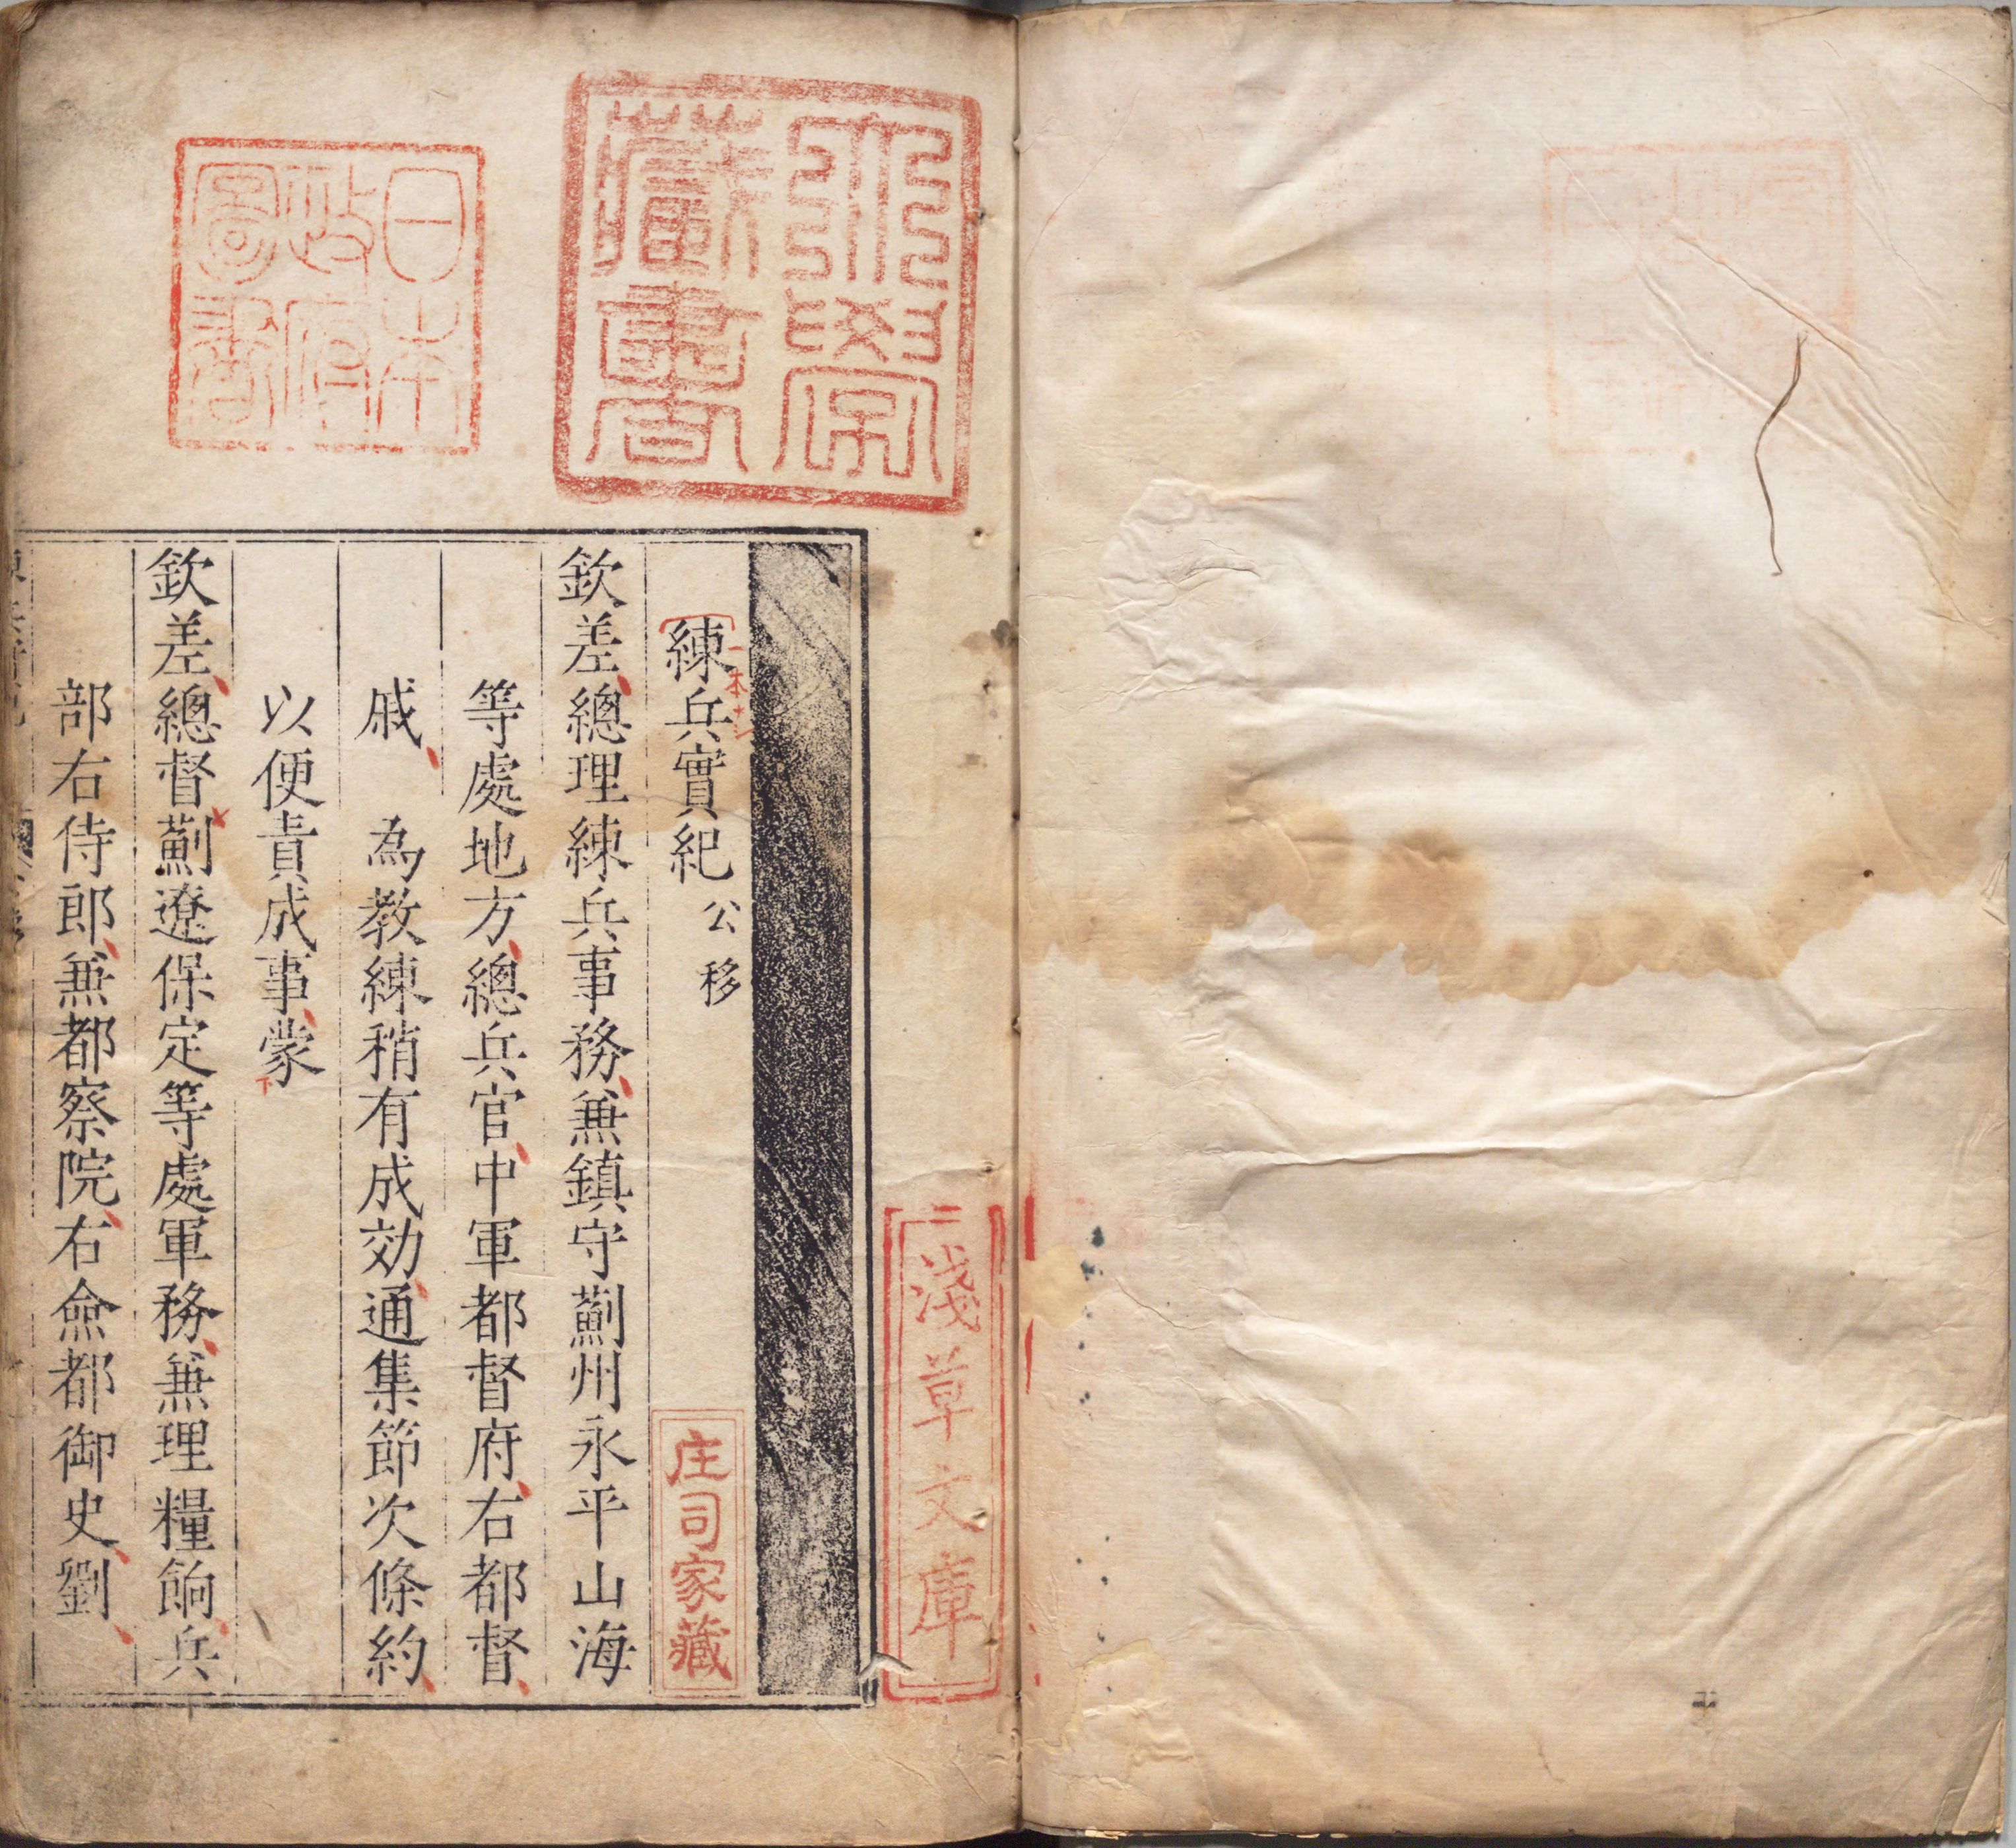 兼學
藏書
日本
政府
圖書
淺草文庫
練兵實紀 公移
一本ナシ
庄司家藏
欽差總理練兵事務兼鎮守薊州永平山海
等處地方總兵官中軍都督府右都督
戚 為教練稍有成効通集節次條約
以便責成事蒙
欽差總督薊遼保定等處軍務兼理糧餉兵
部右侍郎兼都察院右僉都御史劉